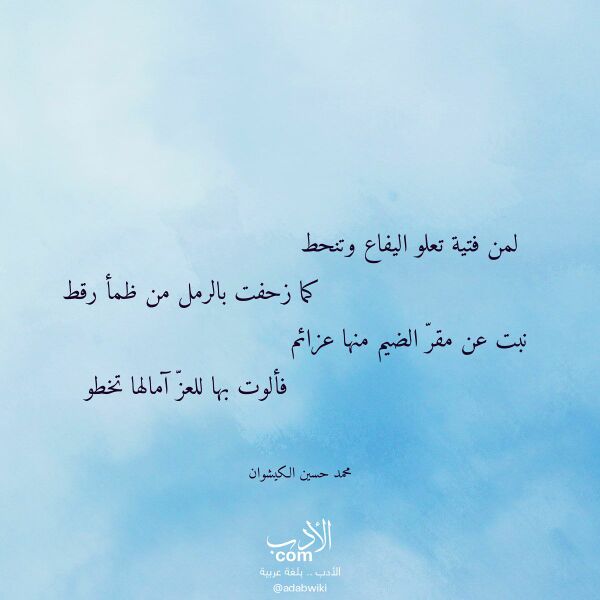 لمن فتية تعلو اليفاع وتنحط
كما زحفت بالرمل من ظمأ رقط
نبت عن مقرّ الضيم منها عزائم
فألوت بها للعزّ آمالها تخطو
محمد حسين الكيشوان
الأدب
com
الأدب .. بلغة عربية
@adabwiki